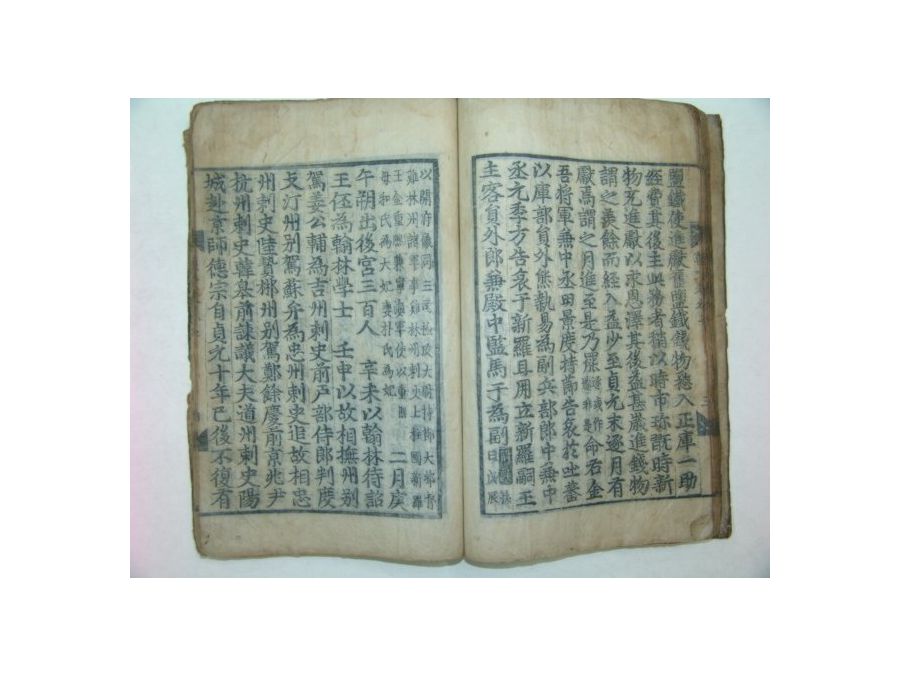 鹽鐵使進獻舊鹽鐵錢物悉入正庫一助
經費其後主此務者稍以時市珍翫時新
物充進獻以求恩澤其後益甚歲進錢物
謂之羨餘而經入益少至貞元末逐月有
獻焉謂之月進至是乃罷命右金
吾將軍兼中丞田景度持節告哀於吐蕃
以庫部員外熊執易為副兵部郎中兼中
丞元季方告哀于新羅且冊立新羅嗣王
主客員外郎兼殿中監馬于為副
以開府儀同三司檢校太尉持節大都督
雞林州諸軍事雞林州刺史上柱國新羅
王金重熙兼寧海軍使以重熙
母和氏為太妃妻朴氏為妃 二月戾
午朔出後宮三百人 辛未以翰林待詔
王伾為翰林學士 壬申以故相撫州別
駕姜公輔為吉州刺史前戶部侍郎判度
支汀州別駕蘇弁為忠州刺史追故相忠
州刺史陸贄郴州別駕鄭餘慶前京兆尹
杭州刺史韓皋前諫議大夫道州刺史陽
城赴京師德宗自貞元十年已後不復有